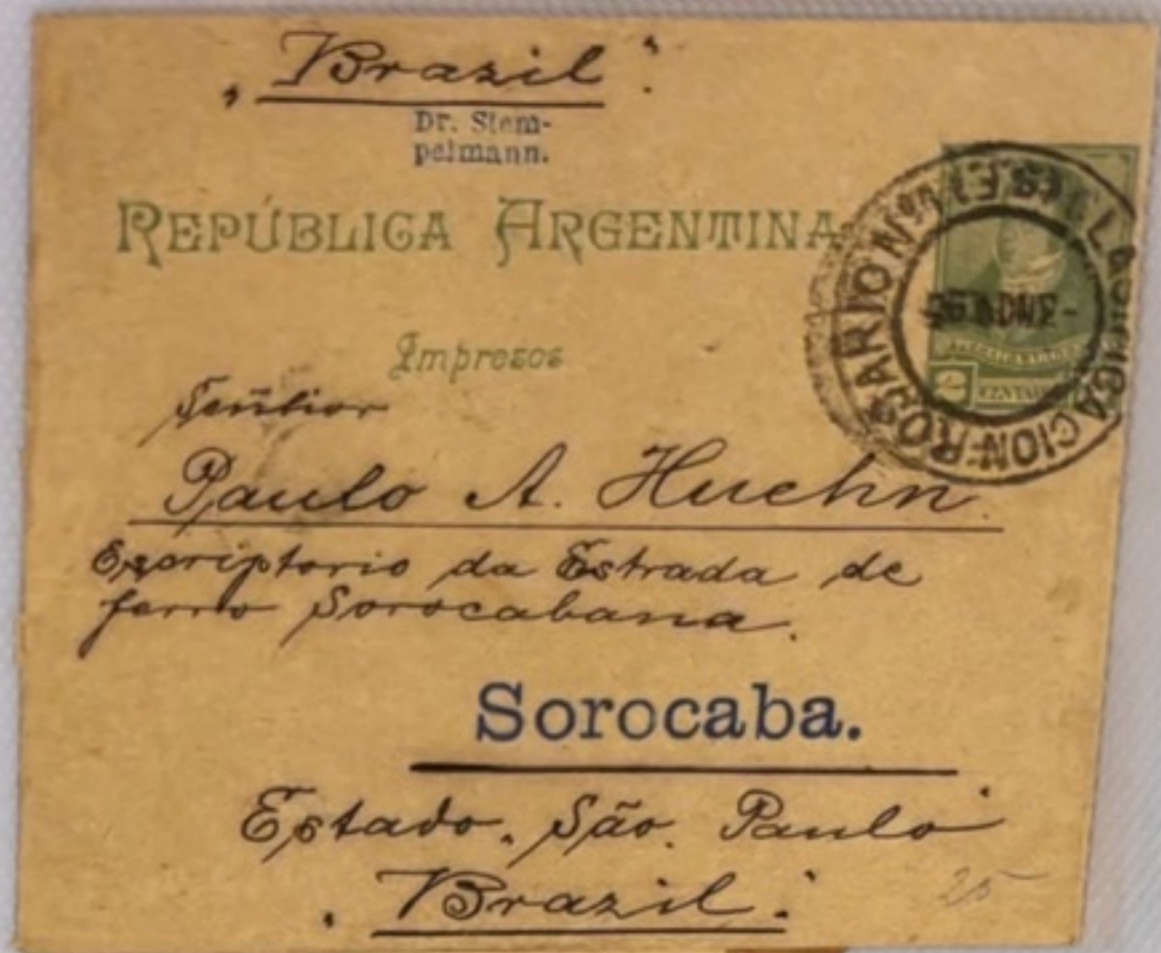 „Brazil“
Dr. Stem-
pelmann.
REPÚBLICA ARGENTINA
Impresos
Señhor
Paulo A. Huehn.
Escriptorio da Estrada de
ferro Sorocabana.
Sorocaba.
Estado. São. Paulo
Brazil.
25
ROSARIO Nº1
CENTAVOS